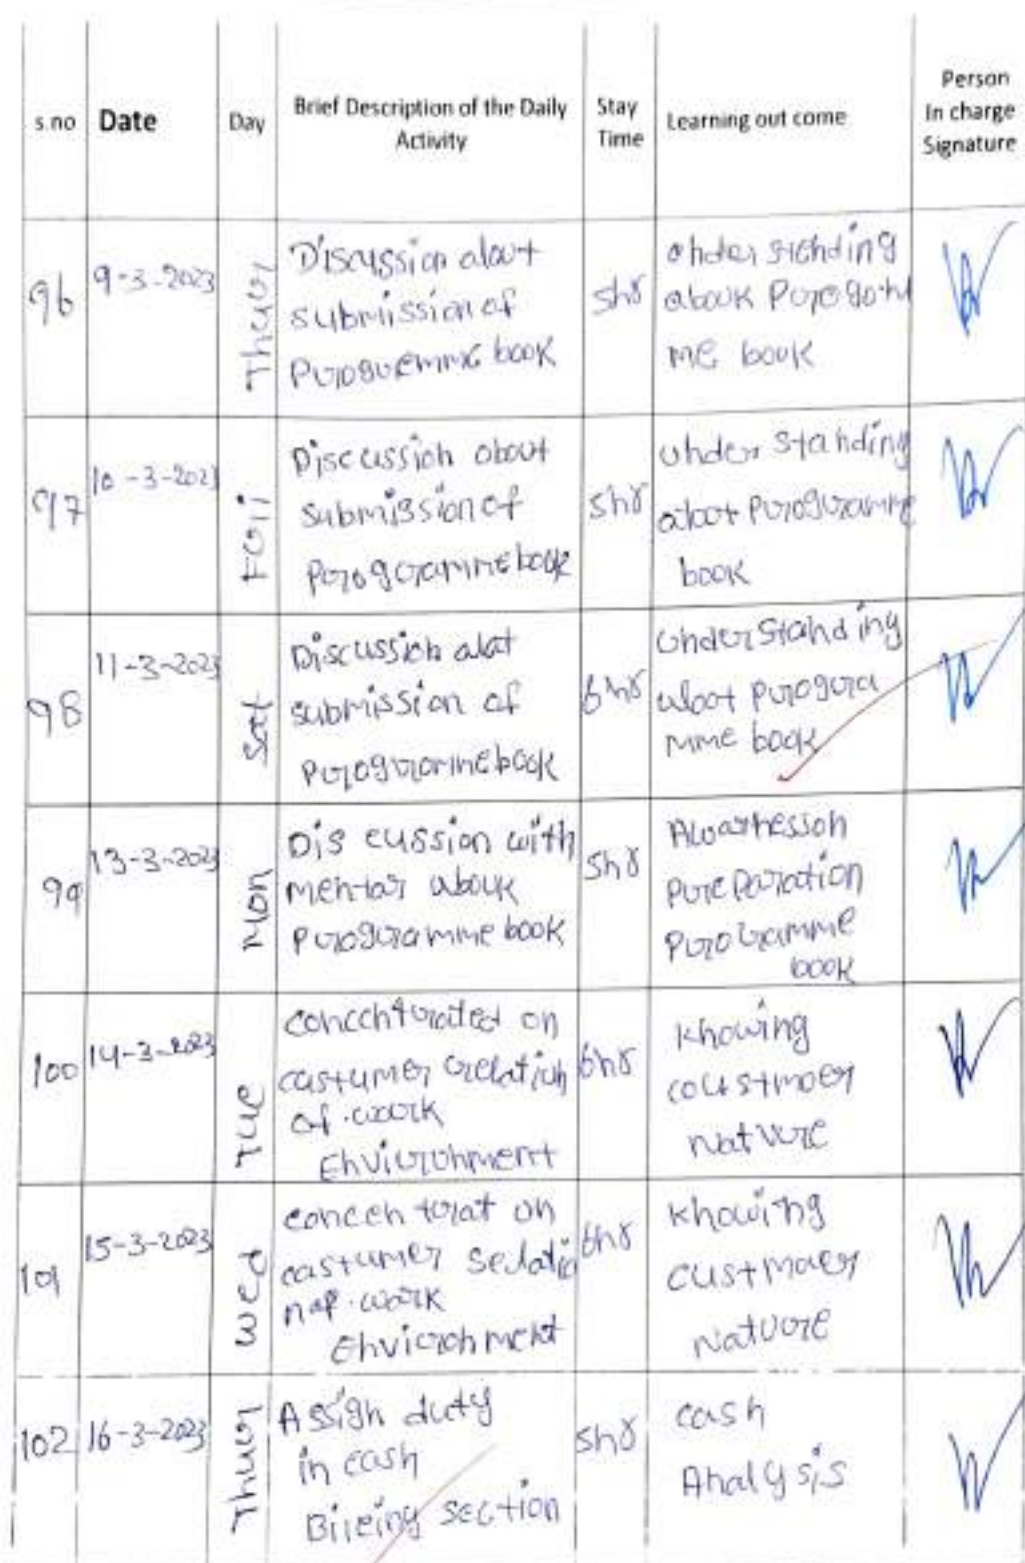 s.no Date Day Brief Description of the Daily Activity Stay Time Learning out come Person In charge Signature
96 9-3-2023 Thur
Discussion about
submission of
Programme book
5hr
understending
about Progom
me book
97 10-3-2023 Fri
Discussion about
submission of
Programme book
5hr
understanding
about programme
book
98 11-3-2023 Sat
Discussion abot
submission of
programme book
6hr
understanding
aboot progra
mme book
99 13-3-2023 Mon
Discussion with
mentor about
programme book
5hr
Awarness on
preparation
programme
book
100 14-3-2023 Tue
concentrated on
castumer relation
of work
Environment
6hr
knowing
coustmoer
nature
101 15-3-2023 wed
concentrat on
castumer
work
Environment
6hr
knowing
custmoer
nature
102 16-3-2023 Thur
Assign duty
in cash
section
5hr
cash
Analysis